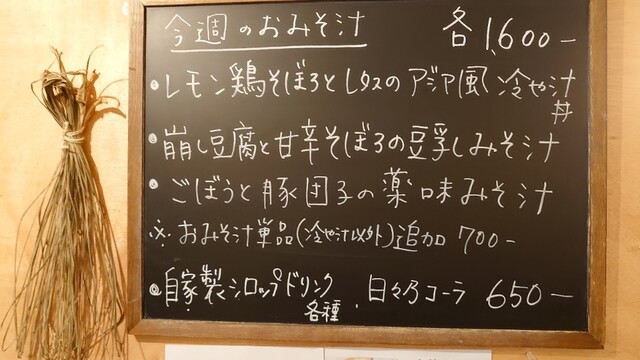 今週のおみそ汁 各1,600-
・レモン鶏そぼろとレタスのアジア風 冷や汁丼
・崩し豆腐と甘辛そぼろの豆乳しみそ汁
・ごぼうと豚団子の薬味みそ汁
※おみそ汁単品(冷や汁以外)追加 700-
・自家製シロップドリンク各種. 日々乃コーラ 650-